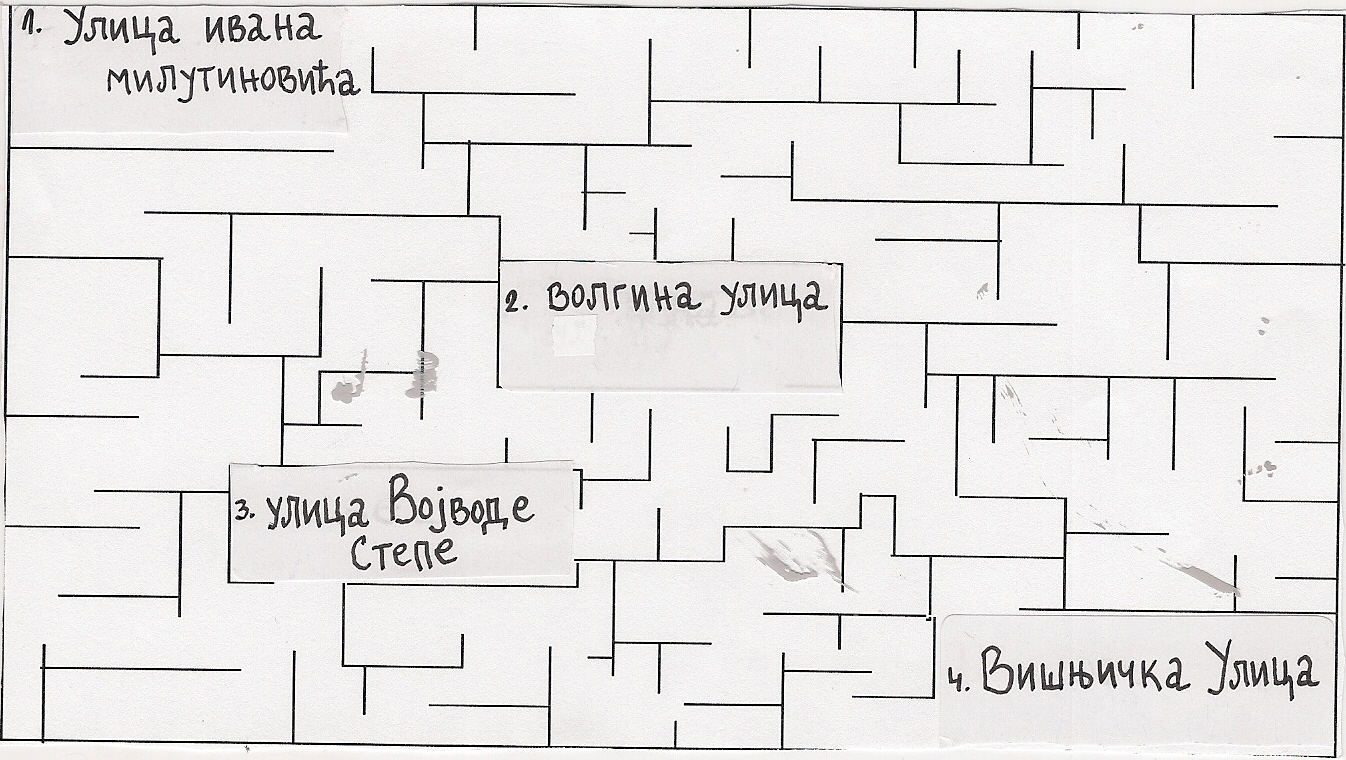 1. Улица ивана
милутиновића
2. Волгина улица
3. улица Војводе
Степе
4. Вишњичка Улица